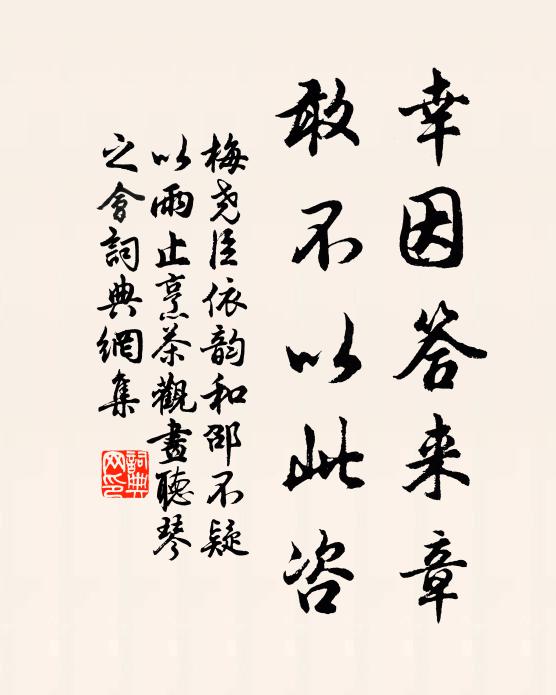 幸因答来章
敢不以此咨
梅尧臣依韵和邵不疑
以雨止烹茶觀畫聽琴
之會詞典網集
詞典網印